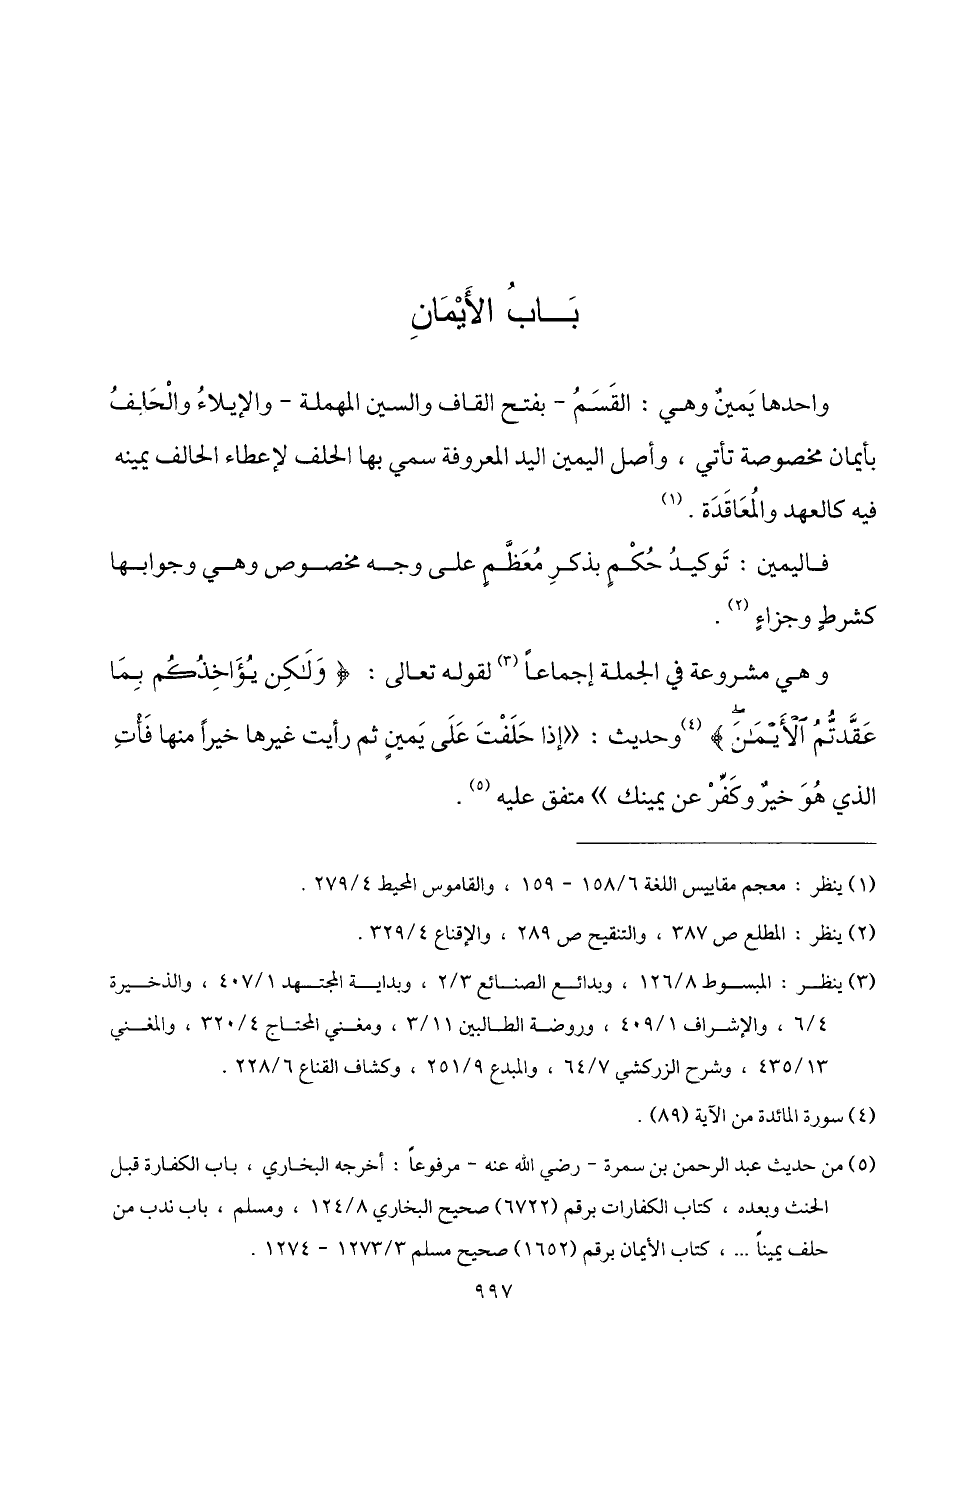 بَـــابُ الأَيْمَانِ
واحدها يَمينٌ وهـي : القَسَمُ - بفتـح القـاف والسـين المهملـة - والإيـلاءُ والْحَلِـفُ
بأيمان مخصوصة تأتي ، وأصل اليمين اليد المعروفة سمي بها الحلف لإعطاء الحالف يمينه
فيه كالعهد والمُعَاقَدَة . (١)
فـاليمين : تَوكيـدُ حُكْـمٍ بذكـرِ مُعَظَّـمٍ علـى وجـه مخصـوص وهـي وجوابـهـا
كشرطٍ وجزاءٍ (٢) .
و هـي مشـروعة في الجملـة إجماعـاً (٣) لقولـه تعـالى : ﴿ وَلَٰكِن يُؤَاخِذُكُم بِمَا
عَقَّدتُّمُ ٱلْأَيْمَٰنَۖ ﴾ (٤) وحديث : «إذا حَلَفْتَ عَلَى يَمينٍ ثم رأيت غيرها خيراً منها فَأْتِ
الذي هُوَ خيرٌ وكَفِّرْ عن يمينك » متفق عليه (٥) .
(١) ينظر : معجم مقاييس اللغة ١٥٨/٦ - ١٥٩ ، والقاموس المحيط ٢٧٩/٤ .
(٢) ينظر : المطلع ص ٣٨٧ ، والتنقيح ص ٢٨٩ ، والإقناع ٣٢٩/٤ .
(٣) ينظـر : المبسـوط ١٢٦/٨ ، وبدائـع الصنـائع ٢/٣ ، وبدايـة المجتـهد ٤٠٧/١ ، والذخـيرة
٦/٤ ، والإشـراف ٤٠٩/١ ، وروضـة الطـالبين ٣/١١ ، ومغـني المحتـاج ٣٢٠/٤ ، والمغـني
٤٣٥/١٣ ، وشرح الزركشي ٦٤/٧ ، والمبدع ٢٥١/٩ ، وكشاف القناع ٢٢٨/٦ .
(٤) سورة المائدة من الآية (٨٩) .
(٥) من حديث عبد الرحمن بن سمرة - رضي الله عنه - مرفوعاً : أخرجه البخـاري ، بـاب الكفـارة قبـل
الحنث وبعده ، كتاب الكفارات برقم (٦٧٢٢) صحيح البخاري ١٢٤/٨ ، ومسلم ، باب ندب من
حلف يميناً ... ، كتاب الأيمان برقم (١٦٥٢) صحيح مسلم ١٢٧٣/٣ - ١٢٧٤ .
٩٩٧